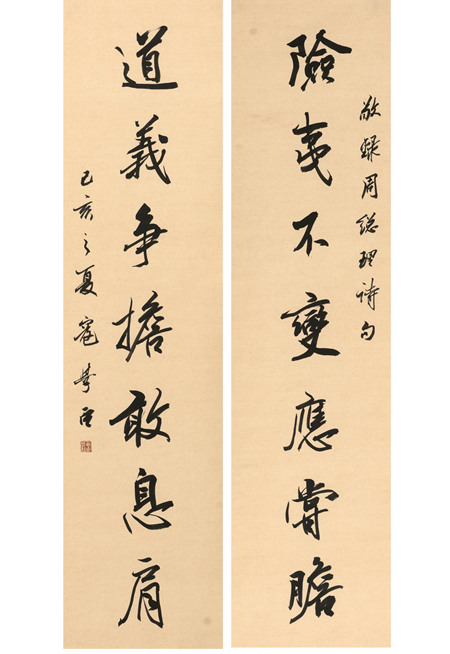 敬録周總理诗句
險夷不變應嘗膽
道義争擔敢息肩
己亥之夏